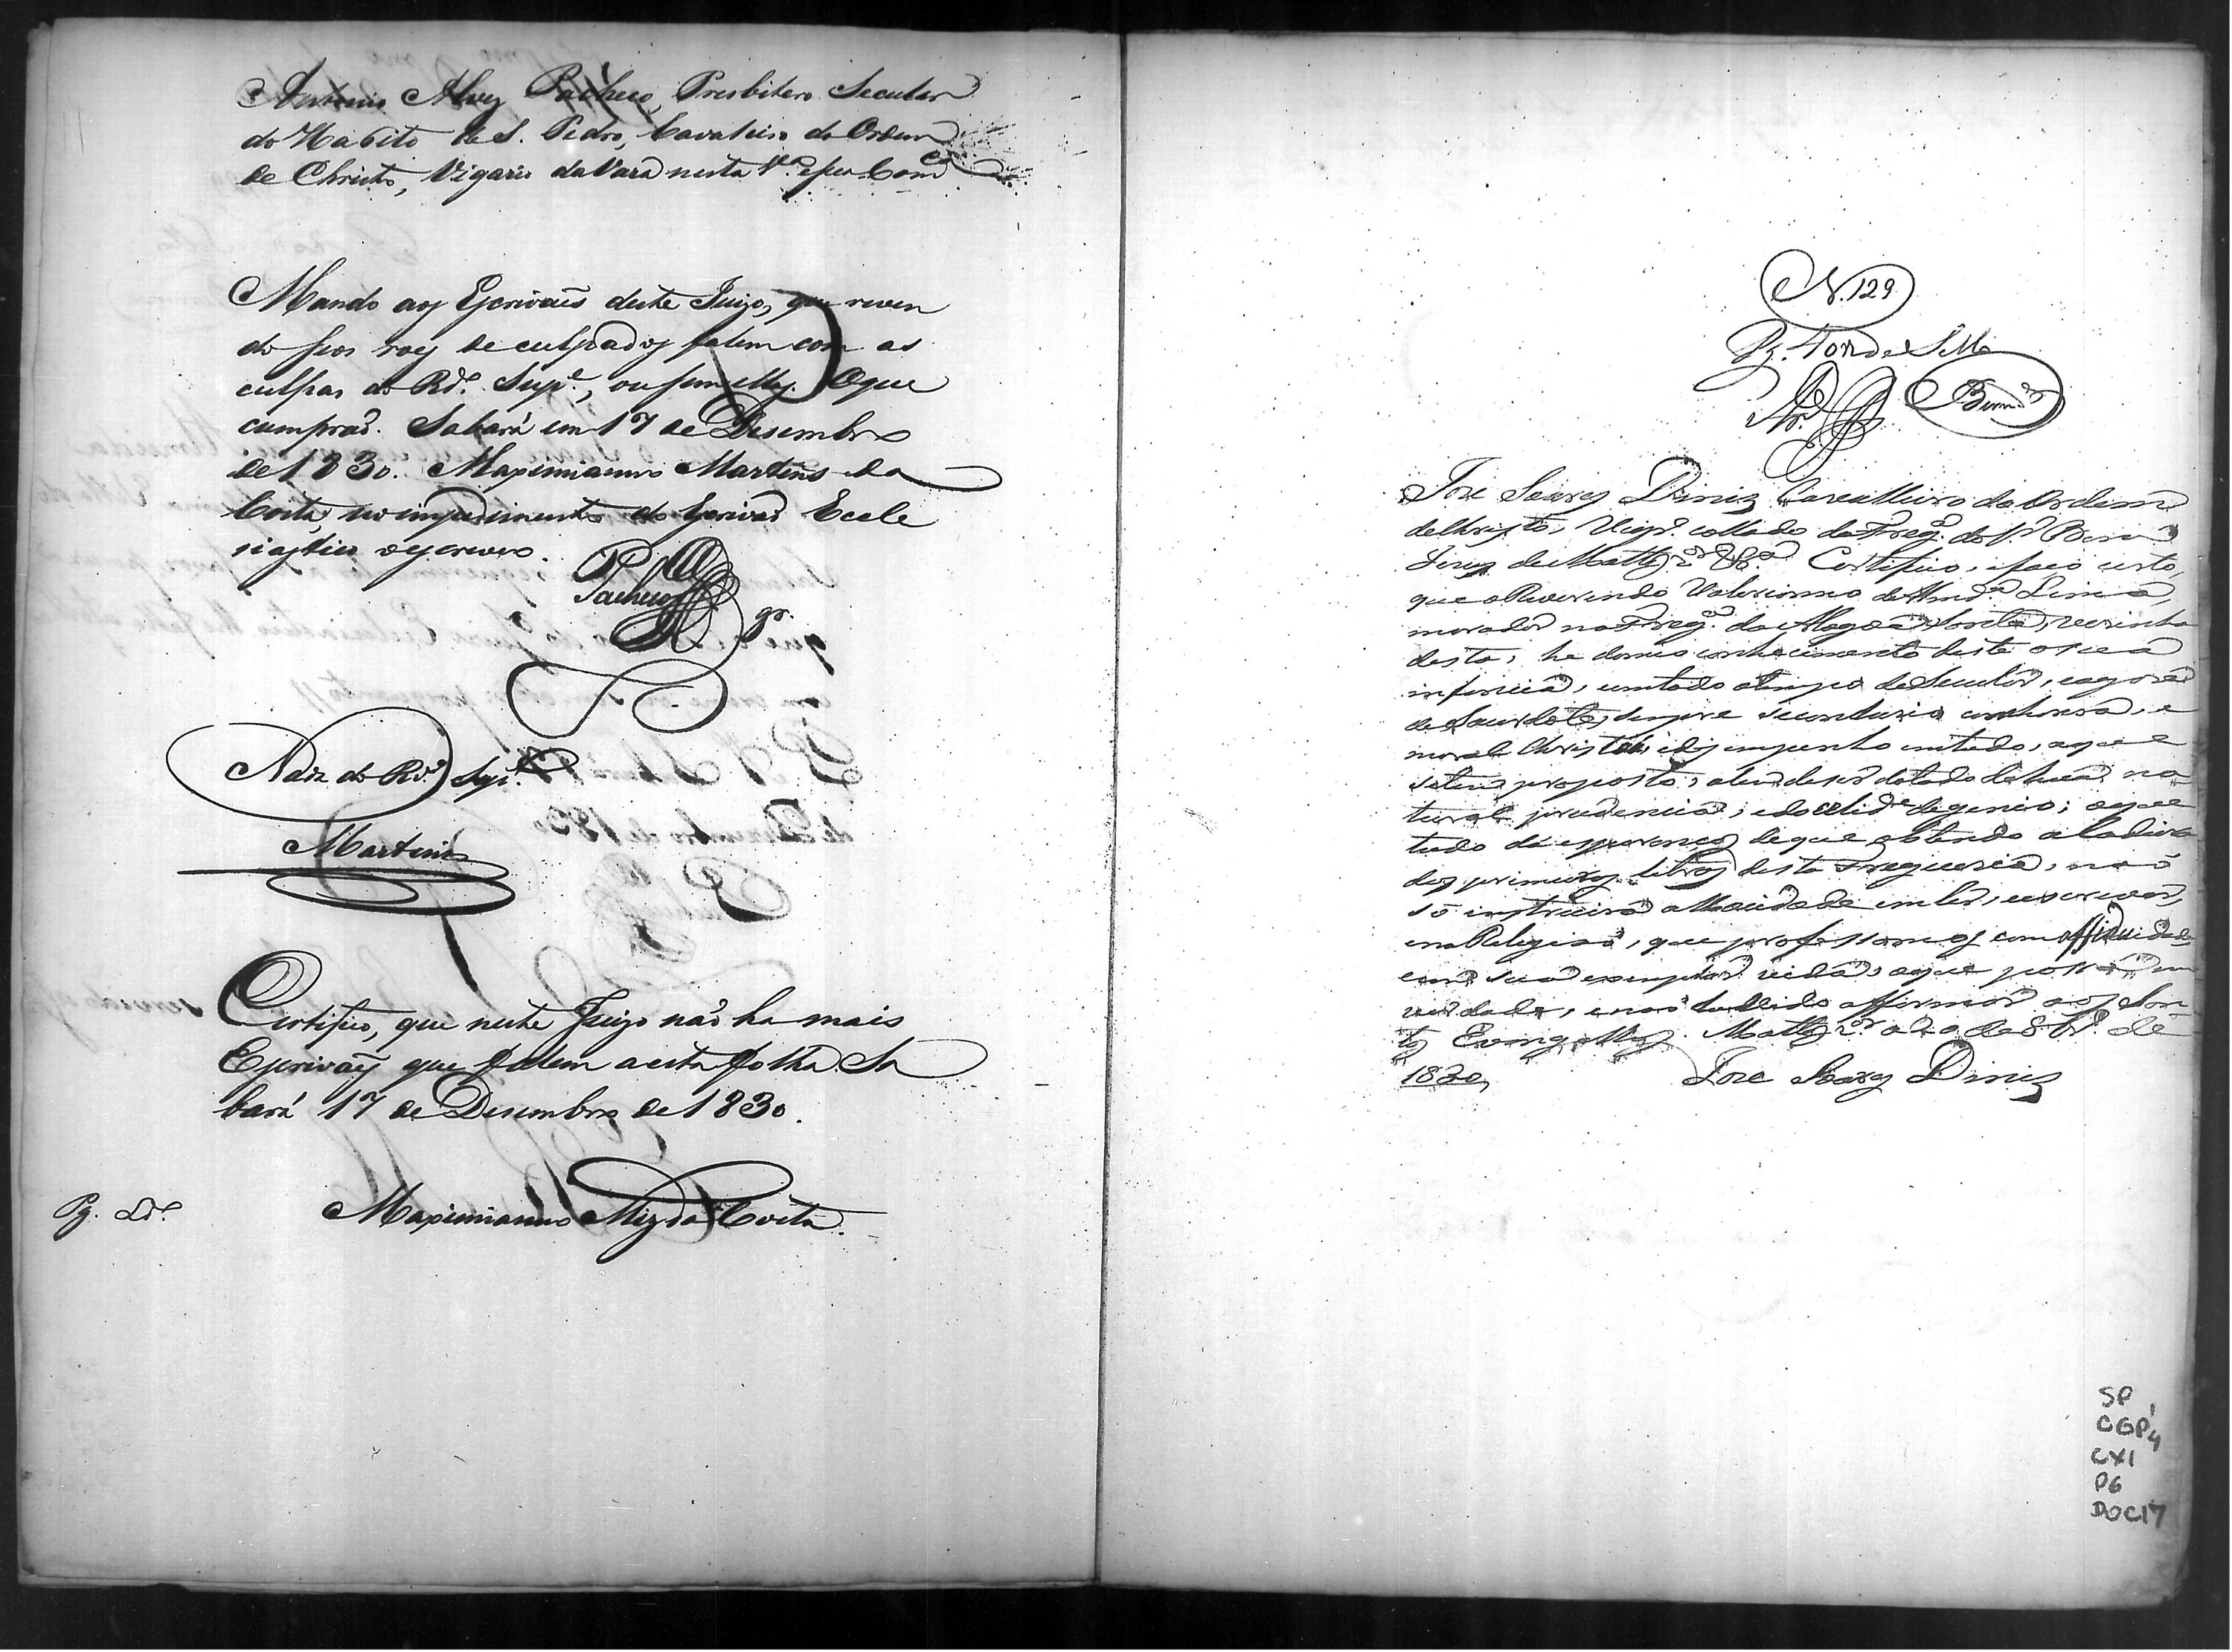 Antonio Alvez Pacheco, Presbitero Secular
do Habito de S. Pedro, Cavaleiro da Ordem
de Christo, Vigario da Vara nesta Vª e seu Com
Mando aos Escrivaes deste Juizo, que reven
do seos roes de culpados falem com as
culpas do Rdo. Supe., ou sem ellas. O que
cumpraõ. Sabará em 17 de Desembro
de 1830. Maximianno Martins da
Costa, no impedimento do Escrivaõ Eccle
siastico o escrevo.
Pacheco
gr.
Nada do Rdo. Supe.
Martins
Certifico, que neste Juizo naõ ha mais
Escrivaes que falem a esta folha. Sa
bará 17 de Desembro de 1830.
Pg. Ldo.
Maximianno Miz da Costa.
N. 129
Pg.
José Soares Diniz Cavalleiro da Ordem
de Christo, Vigro. collado da Freg.ª do Sr. Bom
Jesus de Mattos Certifico, e faco certo,
que o Reverendo Valerianno de Almda. Lima,
morador na Freg.ª da Alagoa Santa, vesinha
desta, he do meo conhecimento deste a sua
infancia, em todo o tempo de Secular, e agora
de Sacerdote, sempre
moral Christãa, e dezempenho em tudo, a que
se tem proposto, alem de ser dotado de huã na
tural prudencia, e docelide. de genio; o que
tudo dá esperanças de que obtendo a Cadeira
das primeiras letras desta Freguesia, naõ
só instruirá a Mocidade em ler, e escrever,
e na Religiaõ, que professamos, com assiduidade
e com sua exemplar vida; o que passa na
verdade, e naõ duvido affirmar aos San
tos Evangelhos. Mattos 20 de 8brº. de
1830,
José Soares Diniz
SP
CGP, 4
CX1
P6
DOC17